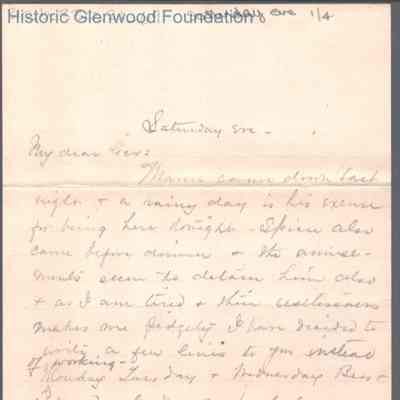 Historic Glenwood Foundation
Saturday eve 1/4
Saturday eve -
My dear
came down last
night & a rainy day is his excuse
for being here tonight - also
came before dinner & the amuse-
ments seem to detain him also
& as I am tired & their restlessness
makes me fidgety I have decided to
write a few lines to you instead
of working -
Monday Tuesday & Wednesday Bess &